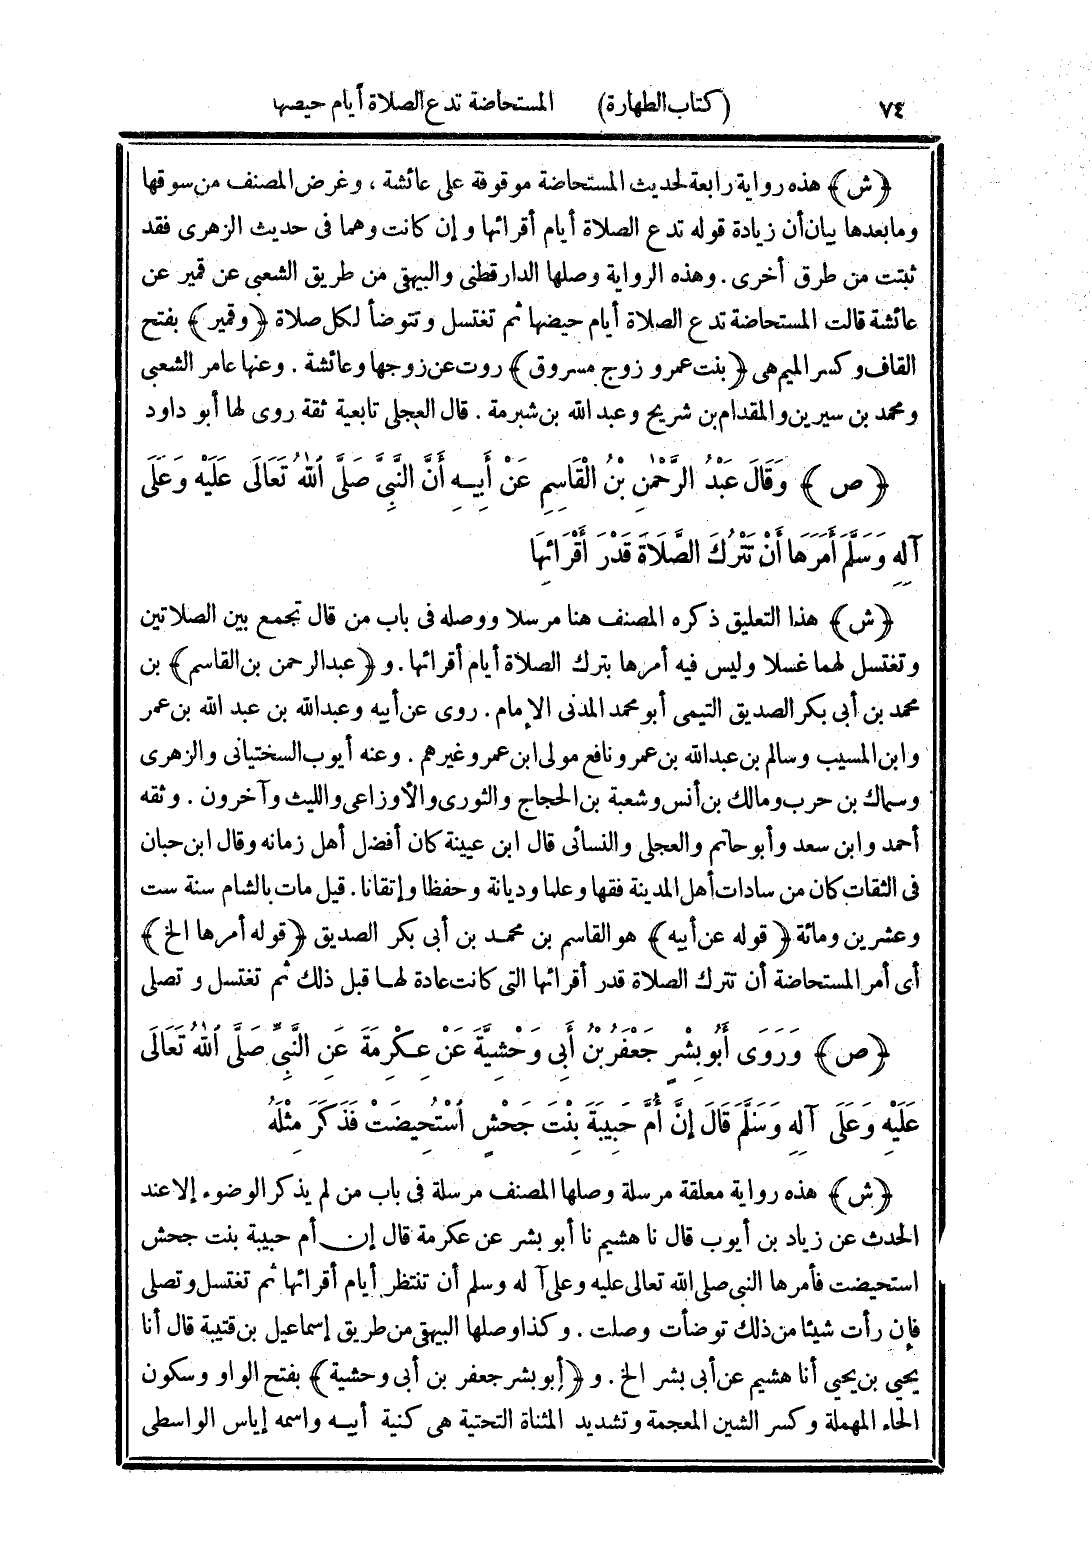 ٧٤ (كتاب الطهارة) المستحاضة تدع الصلاة أيام حيضها
﴿ش﴾ هذه رواية رابعة لحديث المستحاضة موقوفة على عائشة، وغرض المصنف من سوقها
وما بعدها بيان أن زيادة قوله تدع الصلاة أيام أقرائها وإن كانت وهما فى حديث الزهرى فقد
ثبتت من طرق أخرى. وهذه الرواية وصلها الدارقطنى والبيهقى من طريق الشعبى عن قمير عن
عائشة قالت المستحاضة تدع الصلاة أيام حيضها ثم تغتسل وتتوضأ لكل صلاة ﴿وقمير﴾ بفتح
القاف وكسر الميم هى ﴿بنت عمرو زوج مسروق﴾ روت عن زوجها وعائشة. وعنها عامر الشعبى
ومحمد بن سيرين والمقدام بن شريح وعبد الله بن شبرمة. قال العجلى تابعية ثقة روى لها أبو داود
﴿ص﴾ وَقَالَ عَبْدُ الرَّحْمٰنِ بْنُ الْقَاسِمِ عَنْ أَبِيهِ أَنَّ النَّبِىَّ صَلَّى اللهُ تَعَالَى عَلَيْهِ وَعَلَى
آلِهِ وَسَلَّمَ أَمَرَهَا أَنْ تَتْرُكَ الصَّلَاةَ قَدْرَ أَقْرَائِهَا
﴿ش﴾ هذا التعليق ذكره المصنف هنا مرسلا ووصله فى باب من قال تجمع بين الصلاتين
وتغتسل لهما غسلا وليس فيه أمرها بترك الصلاة أيام أقرائها. و﴿عبد الرحمن بن القاسم﴾ بن
محمد بن أبى بكر الصديق التيمى أبو محمد المدنى الإمام. روى عن أبيه وعبد الله بن عبد الله بن عمر
وابن المسيب وسالم بن عبد الله بن عمر ونافع مولى ابن عمر وغيرهم. وعنه أيوب السختيانى والزهرى
وسماك بن حرب ومالك بن أنس وشعبة بن الحجاج والثورى والأوزاعى والليث وآخرون. وثقه
أحمد وابن سعد وأبو حاتم والعجلى والنسائى قال ابن عيينة كان أفضل أهل زمانه وقال ابن حبان
فى الثقات كان من سادات أهل المدينة فقها وعلما وديانة وحفظا وإتقانا. قيل مات بالشام سنة ست
وعشرين ومائة ﴿قوله عن أبيه﴾ هو القاسم بن محمد بن أبى بكر الصديق ﴿قوله أمرها الخ﴾
أى أمر المستحاضة أن تترك الصلاة قدر أقرائها التى كانت عادة لها قبل ذلك ثم تغتسل وتصلى
﴿ص﴾ وَرَوَى أَبُو بِشْرٍ جَعْفَرُ بْنُ أَبِى وَحْشِيَّةَ عَنْ عِكْرِمَةَ عَنِ النَّبِىِّ صَلَّى اللهُ تَعَالَى
عَلَيْهِ وَعَلَى آلِهِ وَسَلَّمَ قَالَ إِنَّ أُمَّ حَبِيبَةَ بِنْتَ جَحْشٍ اسْتُحِيضَتْ فَذَكَرَ مِثْلَهُ
﴿ش﴾ هذه رواية معلقة مرسلة وصلها المصنف مرسلة فى باب من لم يذكر الوضوء إلا عند
الحدث عن زياد بن أيوب قال نا هشيم نا أبو بشر عن عكرمة قال إن أم حبيبة بنت جحش
استحيضت فأمرها النبى صلى الله تعالى عليه وعلى آله وسلم أن تنتظر أيام أقرائها ثم تغتسل وتصلى
فإن رأت شيئا من ذلك توضأت وصلت. وكذا وصلها البيهقى من طريق إسماعيل بن قتيبة قال أنا
يحيى بن يحيى أنا هشيم عن أبى بشر الخ. و﴿أبو بشر جعفر بن أبى وحشية﴾ بفتح الواو وسكون
الحاء المهملة وكسر الشين المعجمة وتشديد المثناة التحتية هى كنية أبيه واسمه إياس الواسطى